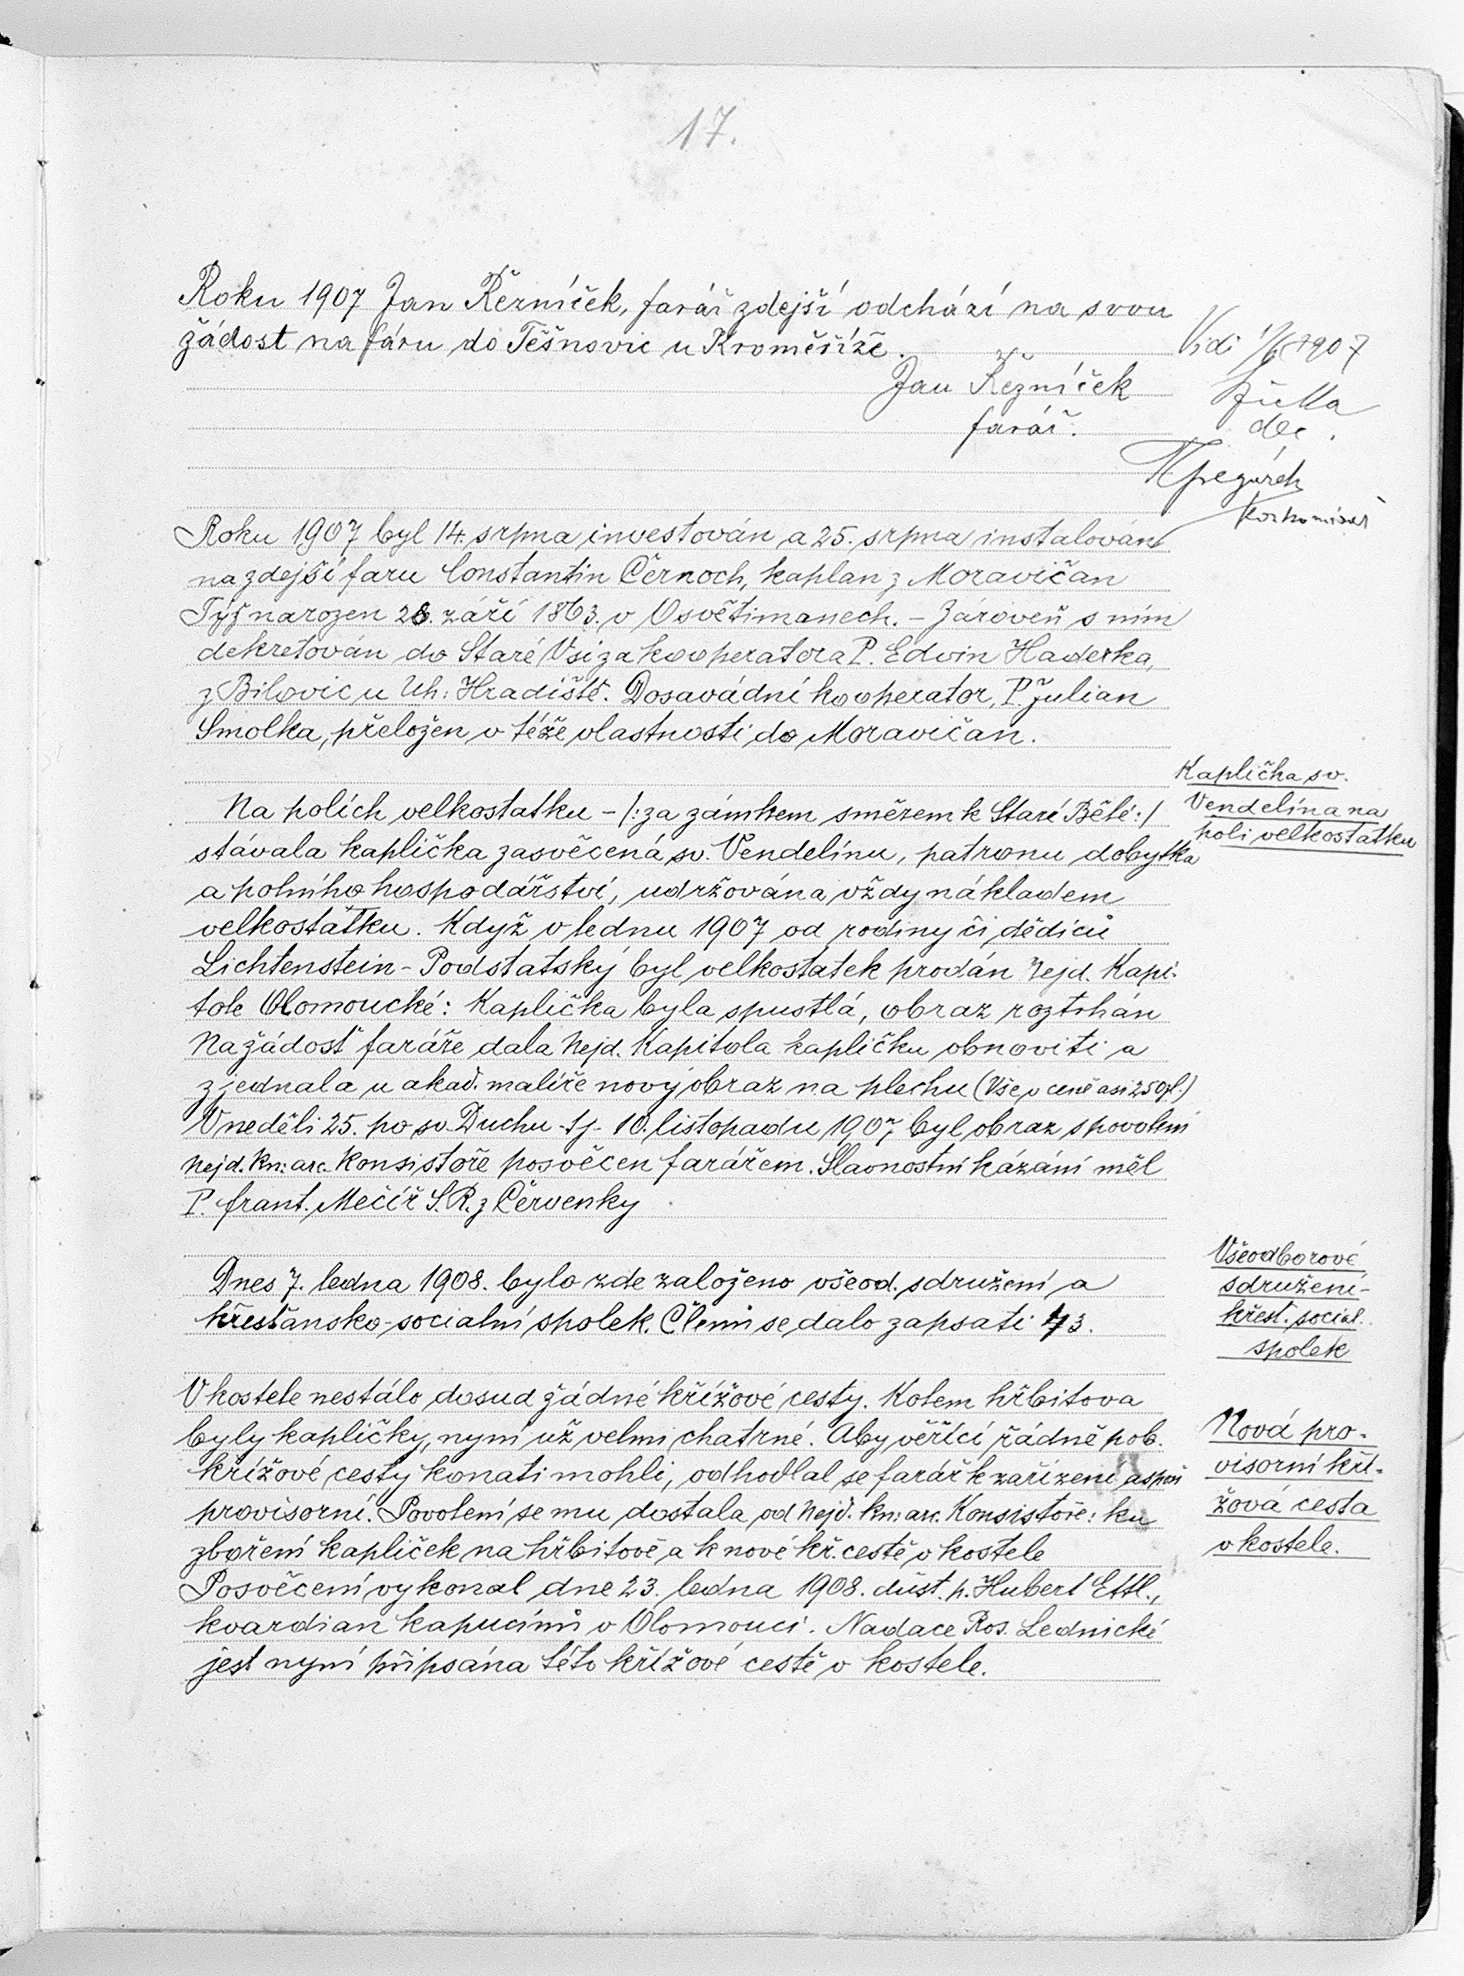 17.
Roku 1907 Jan Řezníček, farář zdejší odchází na svou
žádost na fáru do Těšnovic u Kroměříže.
Jan Řezníček
farář.
Vidi 1907
děc.
Roku 1907 byl 14. srpna investován a 25. srpna instalován
na zdejší faru Constantin Černoch, kaplan z Moravičan
Týž narozen 28. září 1863. v Osvětimanech. - Zároveň s ním
dekretován do Staré Vsi za kooperatora P. Edvin Haderka,
z Bilovic u Uh: Hradiště. Dosavádní kooperator, P. Julian
Smolka, přeložen v téže vlastnosti do Moravičan.
Kaplička sv.
Vendelína na
poli velkostatku
Na polích velkostatku - /: za zámkem směrem k Staré Bělé :/
stávala kaplička zasvěcená sv. Vendelínu, patronu dobytka
a polního hospodářství, udržována vždy nákladem
velkostatku. Když v lednu 1907 od rodiny či dědiců
Lichtenstein - Podstatský byl velkostatek prodán Nejd. Kapi-
tole Olomoucké: Kaplička byla spustlá, obraz roztrhán
Na žádosť faráře dala Nejd. Kapitola kapličku obnoviti a
zjednala u akad. malíře nový obraz na plechu (Vše v ceně asi 250 zl.)
V neděli 25. po sv. Duchu - tj - 10. listopadu 1907 byl obraz s povolení
Nejd. kn: arc. Konsistoře posvěcen farářem. Slavnostní kázání měl
P. Frant. Mečíř S.R. z Červenky
Dnes 7. ledna 1908. bylo zde založeno všeod. sdružení a
křesťansko-socialní spolek. Členů se dalo zapsati 43.
Všeodborové
sdružení -
křest. social.
spolek
V kostele nestálo dosud žádné křížové cesty. Kolem hřbitova
byly kapličky, nyní už velmi chatrné. Aby věřící řádně pob.
křížové cesty konati mohli, odhodlal se farář k zařízení aspoň
provisorní. Povolení se mu dostala od Nejd. kn: arc. Konsistoře: ku
zboření kapliček na hřbitově a k nové kř. cestě v kostele
Posvěcení vykonal dne 23. ledna 1908. důst. p. Hubert Ettl.,
kvardian kapucínů v Olomouci. Nadace Ros. Lednické
jest nyní připsána této křížové cestě v kostele.
Nová pro-
visorní kří-
žová cesta
v kostele.